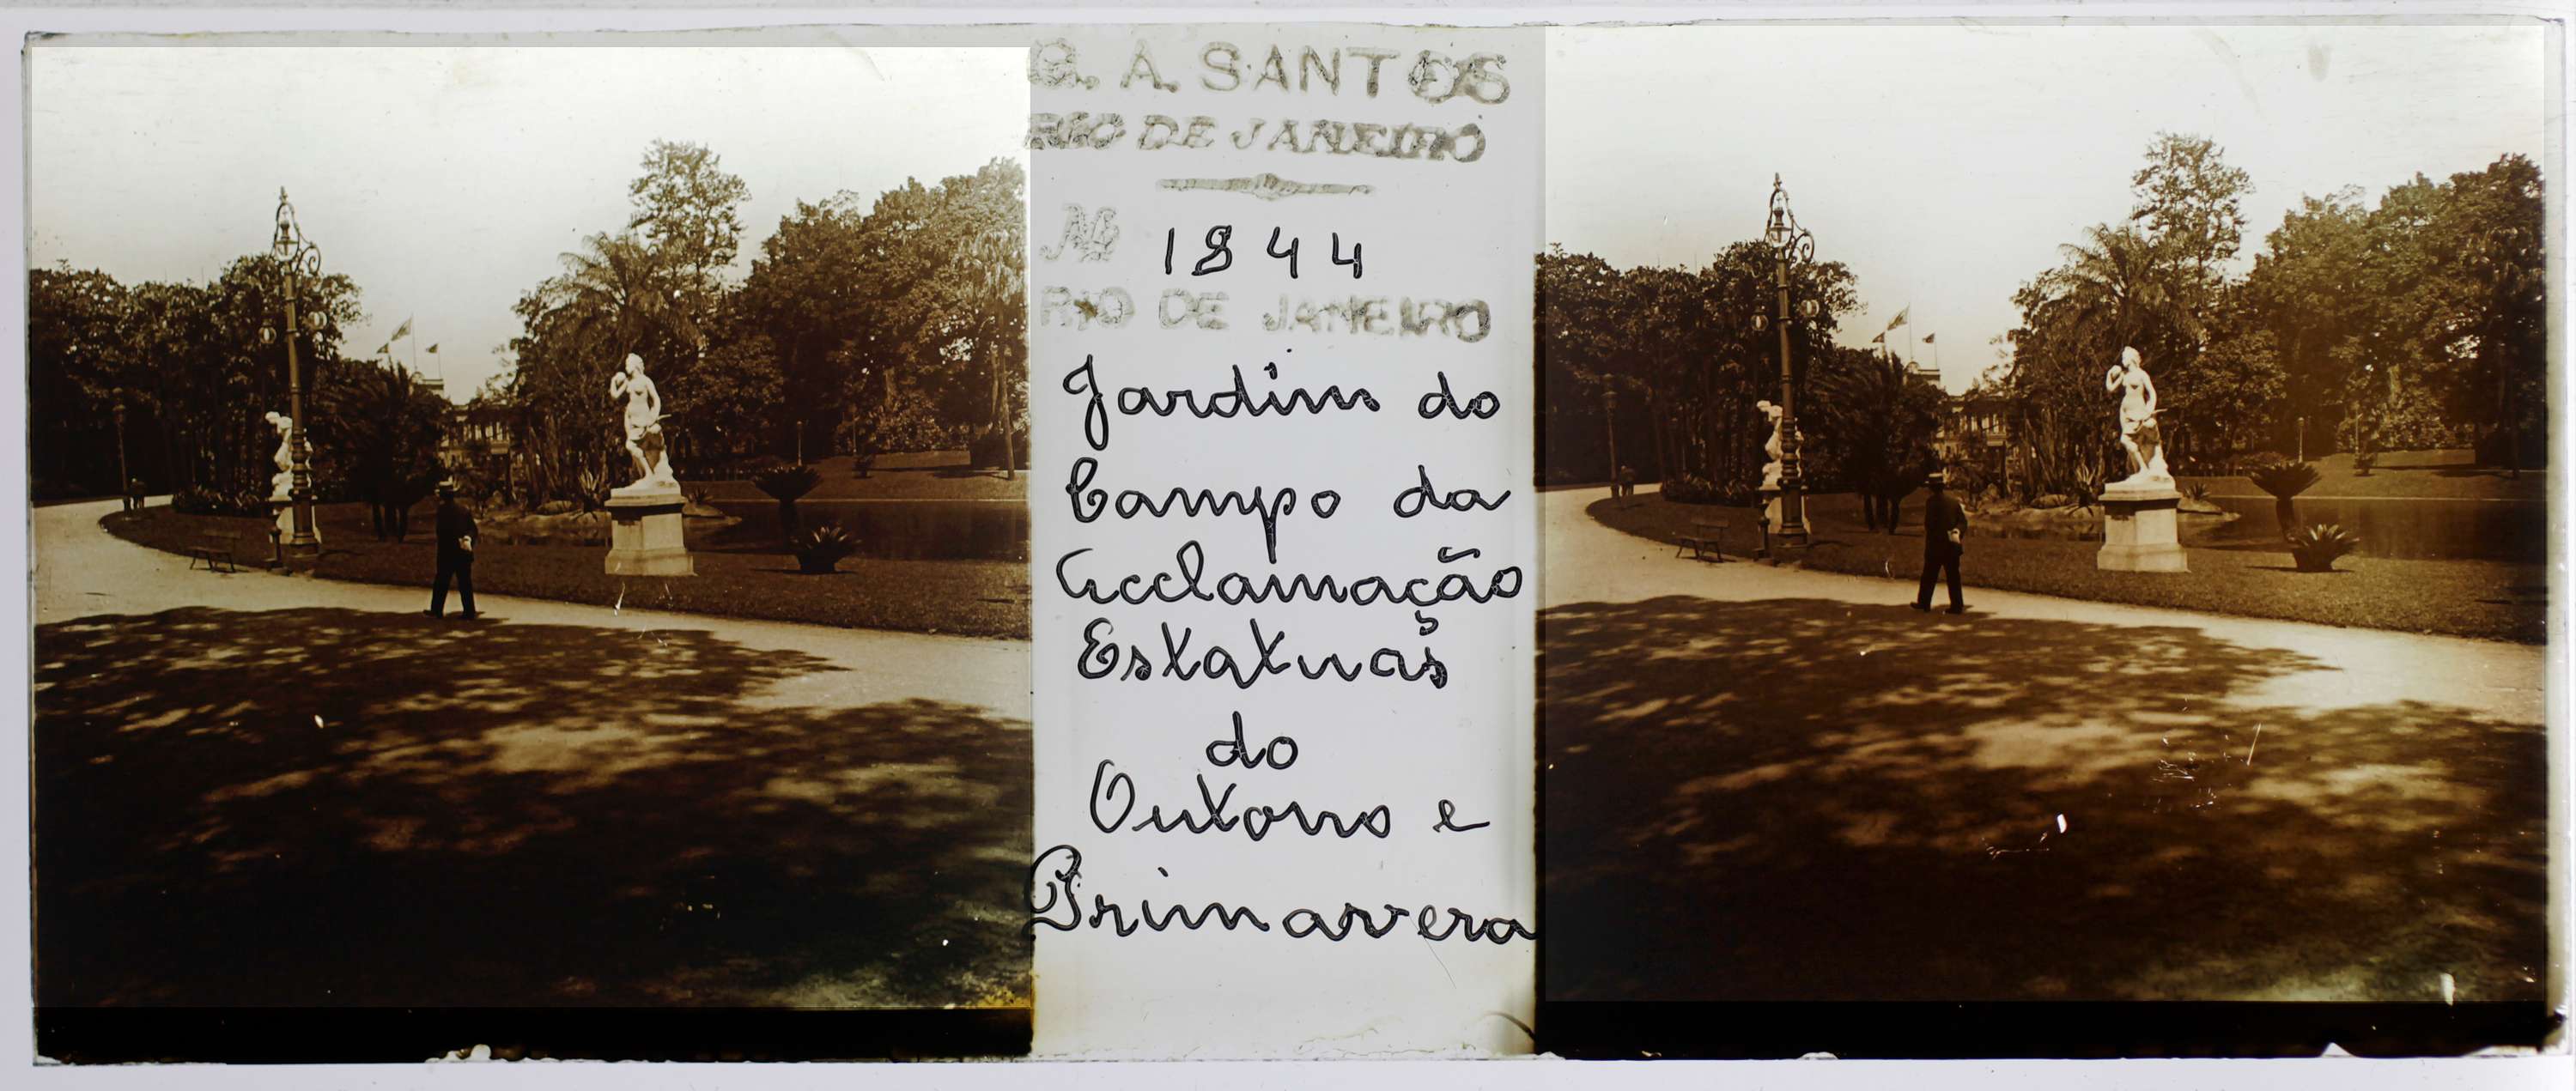 G. A. SANTOS
RIO DE JANEIRO
Nº 1844
RIO DE JANEIRO
Jardim do
Campo da
Acclamação
Estatuas
do
Outono e
Primavera